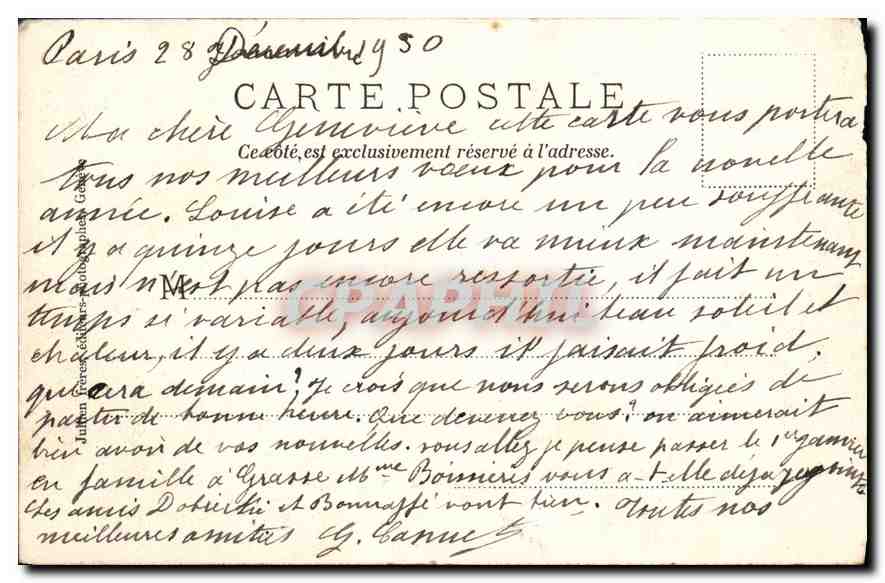 Paris 28 Décembre 1930
CARTE POSTALE
Ma chère Geneviève cette carte vous portera
Ce côté, est exclusivement réservé à l'adresse.
tous nos meilleurs vœux pour la nouvelle
année. Louise a été encore un peu souffrante
il y a quinze jours elle va mieux maintenant
mais n'est pas encore ressortie, il fait un
M
temps si variable, aujourd'hui beau soleil et
chaleur, il y a deux jours il faisait froid.
que sera demain? Je crois que nous serons obligés de
partir de bonne heure. Que devenez vous? on aimerait
bien avoir de vos nouvelles. vous allez je pense passer le 1er janvier
en famille à Grasse Mme vous a-t-elle déjà
Les amis et Bonnaffé vont bien. Toutes nos
meilleures amitiés G.
Jullien frères, éditeurs-photographes, Genève
CPAPHIL